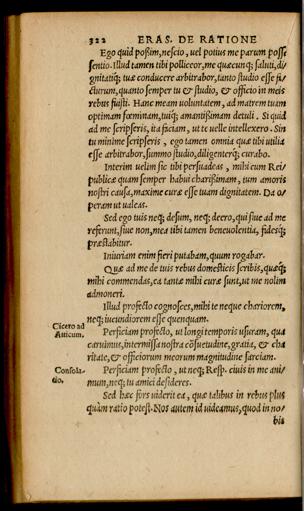 322 ERAS. DE RATIONE
Ego quid poßim, nescio, uel potius me parum posse
sentio. Illud tamen tibi polliceor, me quæcunq; saluti, di/
gnitatiq; tuæ conducere arbitrabor, tanto studio esse fi/
cturum, quanto semper tu & studio, & officio in meis
rebus fuisti. Hanc meam uoluntatem, ad matrem tuam
optimam fœminam, tuiq; amantißimam detuli. Si quid
ad me scripseris, ita faciam, ut te uelle intellexero. Sin
tu minime scripseris, ego tamen omnia quæ tibi utilia
esse arbitrabor, summo studio, diligenterq; curabo.
Interim uelim sic tibi persuadeas, mihi cum Rei/
publicæ quam semper habui charißimam, tum amoris
nostri causa, maximæ curæ esse tuam dignitatem. Da o/
peram ut ualeas.
Sed ego tuis neq; desum, neq; deero, qui siue ad me
referunt, siue non, mea tibi tamen beneuolentia, fidesq;
præstabitur.
Iniuriam enim fieri putabam, quum rogabar.
Quæ ad me de tuis rebus domesticis scribis, quæq;
mihi commendas, ea tantæ mihi curæ sunt, ut me nolim
admoneri.
Illud profecto cognosces, mihi te neque chariorem,
neq; iucundiorem esse quenquam.
Cicero ad
Atticum.
Perficiam profecto, ut longi temporis usuram, qua
caruimus, intermissa nostra cōsuetudine, gratia, & cha
ritate, & officiorum meorum magnitudine sarciam.
Consola-
tio.
Perficiam profecto, ut neq; Resp. ciuis in me ani/
mum, neq; tu amici desideres.
Sed hæc fors uiderit ea, quæ talibus in rebus plus
quàm ratio potest. Nos autem id uideamus, quod in no/
bis